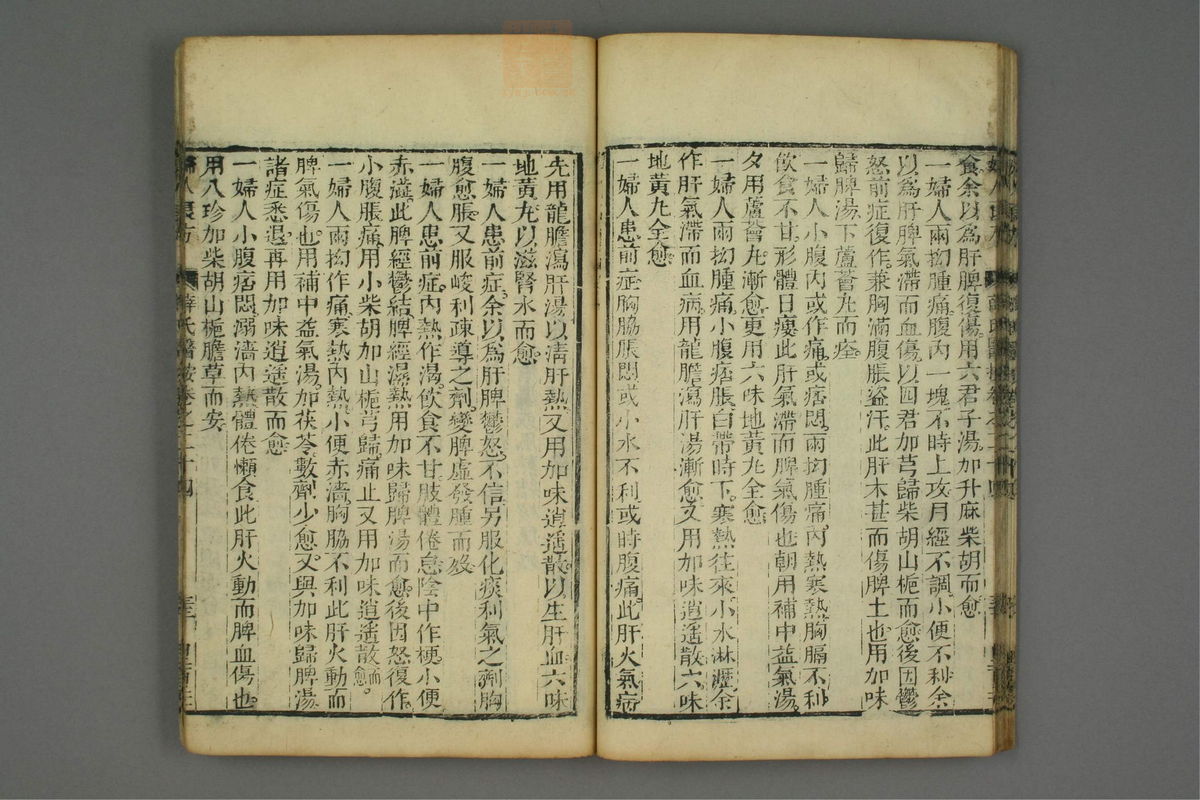 食余以爲肝脾復傷用六君子湯加升麻柴胡而愈
一婦人兩拗腫痛腹內一塊不時上攻月經不調小便不利余
以爲肝脾氣滯而血傷以四君加芎歸柴胡山梔而愈後因鬱
怒前症復作兼胸滿腹脹盗汗此肝木甚而傷脾土也用加味
歸脾湯下蘆薈丸而痊
一婦人小腹內或作痛或痞悶兩拗腫痛內熱寒熱胸膈不利
飲食不甘形體日瘦此肝氣滯而脾氣傷也朝用補中益氣湯
夕用蘆薈丸漸愈更用六味地黃丸全愈
一婦人兩拗腫痛小腹痞脹白帶時下寒熱往來小水淋瀝余
作肝氣滯而血病用龍膽瀉肝湯漸愈又用加味逍遙散六味
地黃丸全愈
一婦人患前症胸脇脹悶或小水不利或時腹痛此肝火氣病
先用龍膽瀉肝湯以清肝熱又用加味逍遙散以生肝血六味
地黃丸以滋腎水而愈
一婦人患前症余以爲肝脾鬱怒不信另服化痰利氣之劑胸
腹愈脹又服峻利疎導之劑變脾虛發腫而歿
一婦人患前症內熱作渴飲食不甘肢體倦怠陰中作梗小便
赤澁此脾經鬱結脾經濕熱用加味歸脾湯而愈後因怒復作
小腹脹痛用小柴胡加山梔芎歸痛止又用加味逍遙散而愈
一婦人兩拗作痛寒熱內熱小便赤濇胸脇不利此肝火動而
脾氣傷也用補中益氣湯加茯苓數劑少愈又與加味歸脾湯
諸症悉退再用加味逍遙散而愈
一婦人小腹痞悶溺濇內熱體倦懶食此肝火動而脾血傷也
用八珍加柴胡山梔膽草而安
婦人良方 薛氏醫按卷之二十四